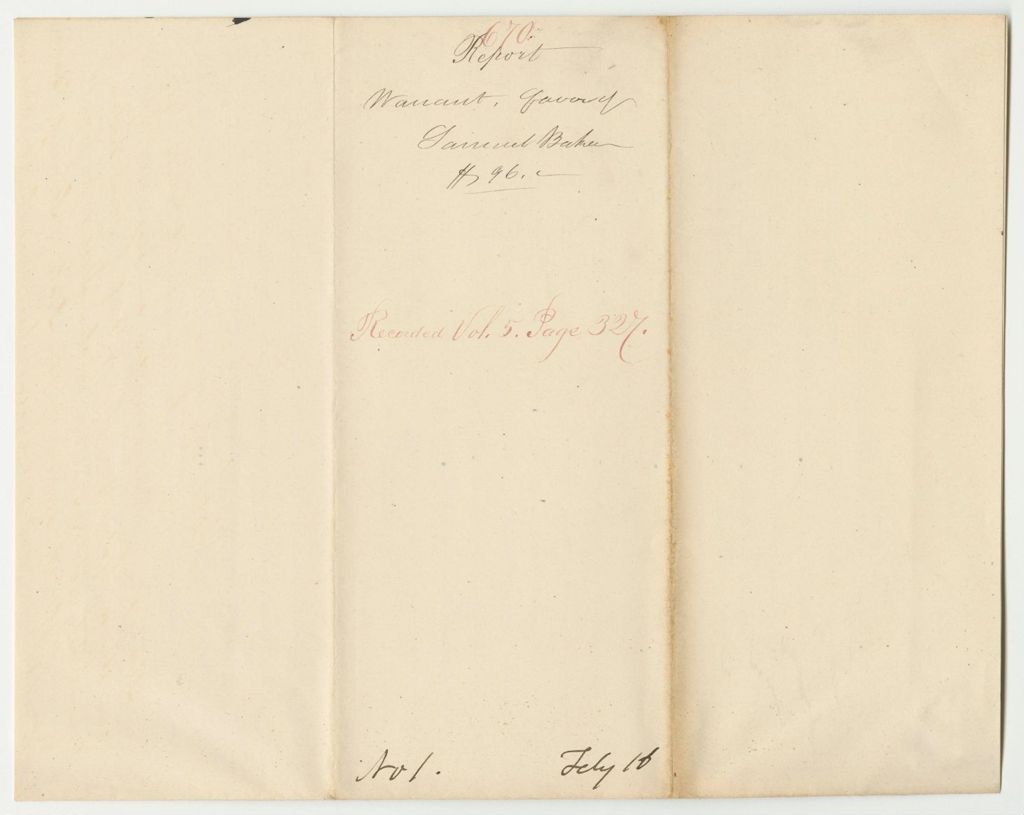 670.
Report
Warrant, favor of
Samuel Baker
$96.
Recorded Vol. 5. Page 327.
No 1. Feby 16